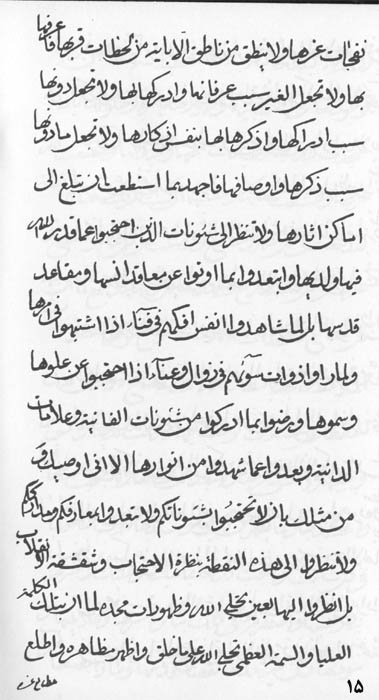 نفحات عزها ولا ينطق من ناطق الا باية من لحظات قربها فاعرفها
بها ولا تجعل الغير سبب عرفانها وادركها بها ولا تجعل دونها
سبب ادراكها واذكرها لها بنفس اذكارها ولا تجعل مادونها
سبب ذكرها واوصافها فاجهد بما استطعت ان تبلغ الى
اماكن اثارها ولا تنظر الى شئونات الذين احتجبوا عما قدر الله
فيها ولديها وابتعدوا بما اوتوا عن معاقد انسها ومقاعد
قدسها بل لما شاهدوا انفس افكهم في فناء اذا اشتبهوا في امرها
ولما راوا ذوات سوئهم في زوال وعناء اذا احتجبوا عن علوها
وسموها ورضوا بما ادركوا من شئونات الفانية وعلامات
الدانية وبعدوا عما شهدوا من انوارها الا انى اوصيك و
من مثلك بان لا تحتجبوا بشئوناتكم ولا تبعدوا بمعارفكم
ولا تنظروا الى هذه النقطة بنظرة الاحتجاب وشقشقة الانقلاب
بل انظروا اليها بعين تجلى الله وظهورات مجده لما ان تلك الكلمة
العليا والسمة العظمى تجلى الله على ما خلق واظهر مظاهره واطلع
١٥